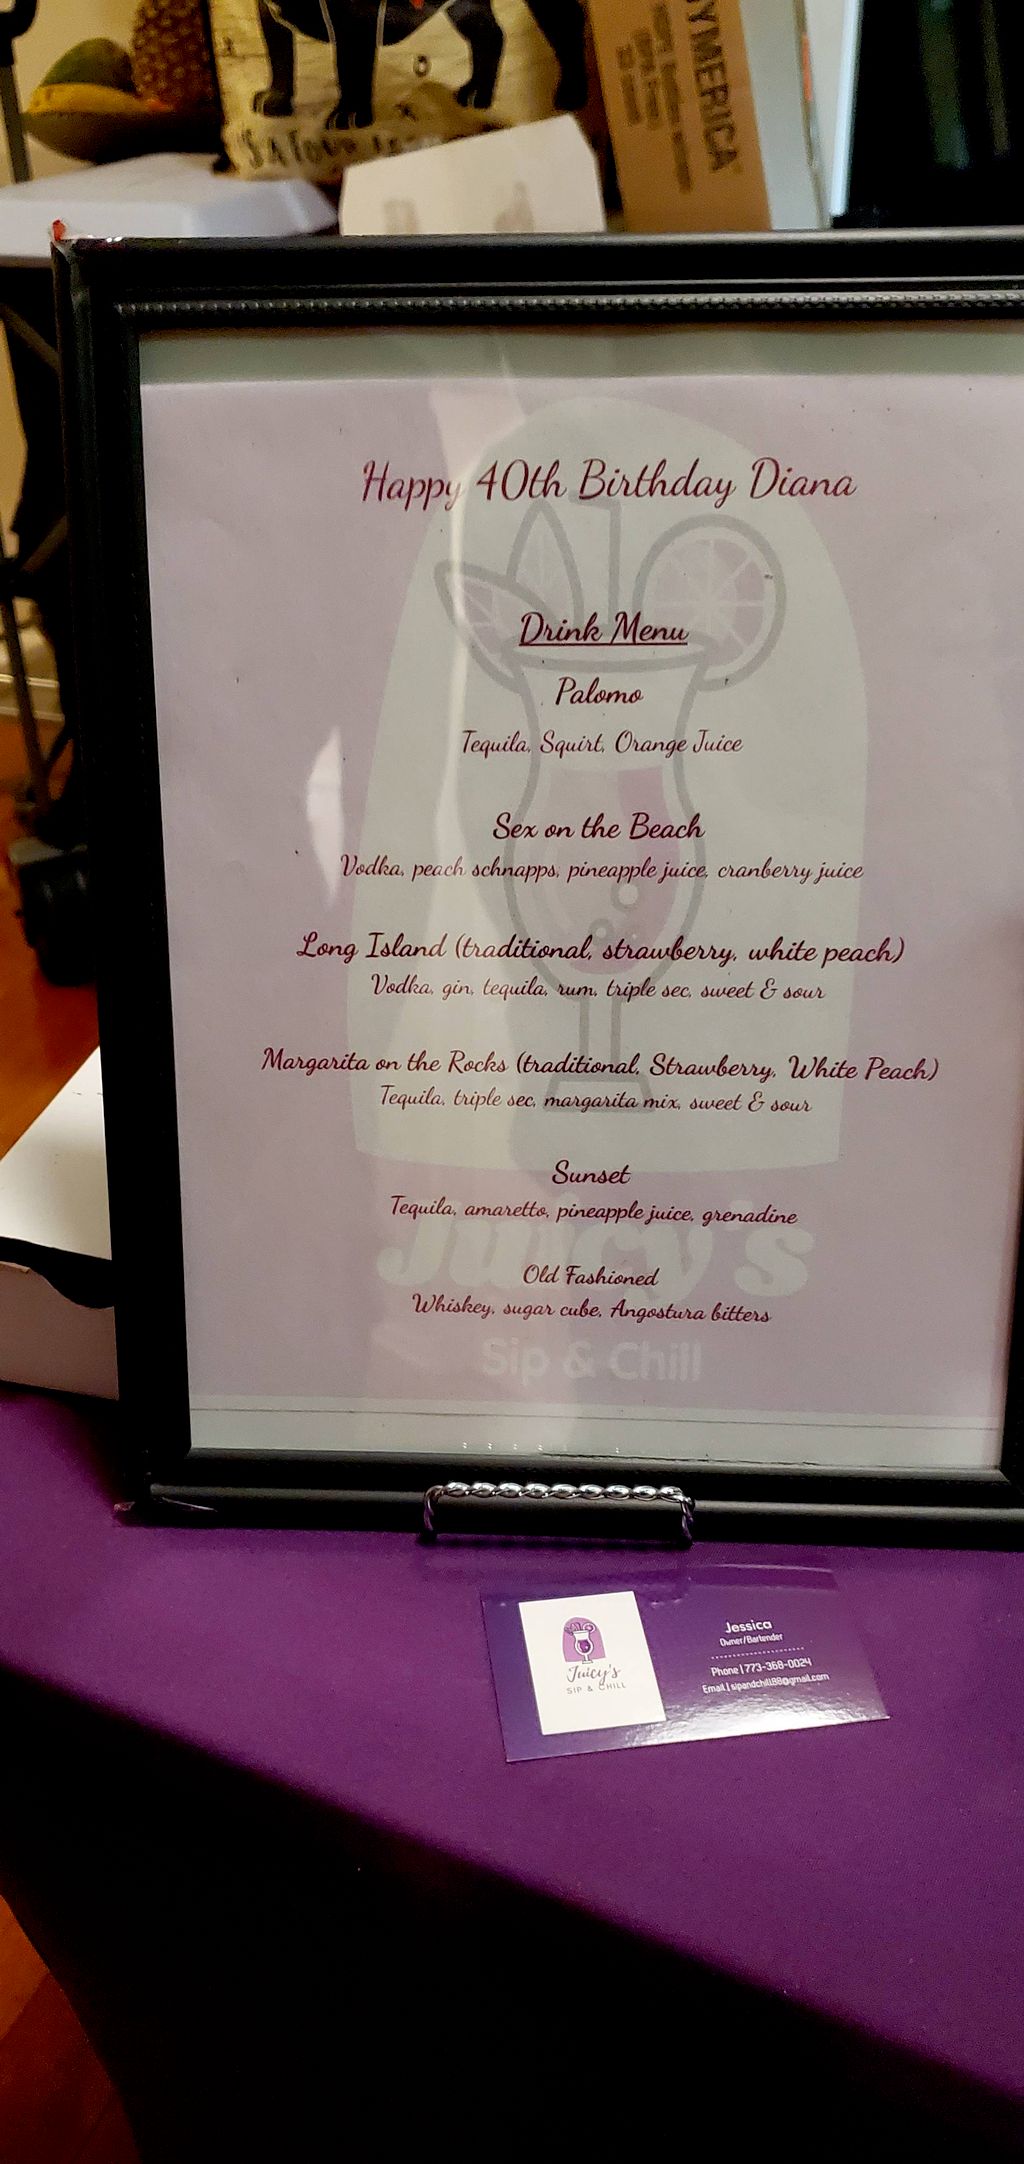 YMERICA
Happy 40th Birthday Diana
Drink Menu
Palomo
Tequila, Squirt, Orange Juice
Sex on the Beach
Vodka, peach schnapps, pineapple juice, cranberry juice
Long Island (traditional, strawberry, white peach)
Vodka, gin, tequila, rum, triple sec, sweet & sour
Margarita on the Rocks (traditional, Strawberry, White Peach)
Tequila, triple sec, margarita mix, sweet & sour
Sunset
Tequila, amaretto, pineapple juice, grenadine
Juicy's
Old Fashioned
Whiskey, sugar cube, Angostura bitters
Sip & Chill
Juicy's
SIP & CHILL
Jessica
Owner/Bartender
Phone | 773-368-0024
Email | sipandchill88@gmail.com